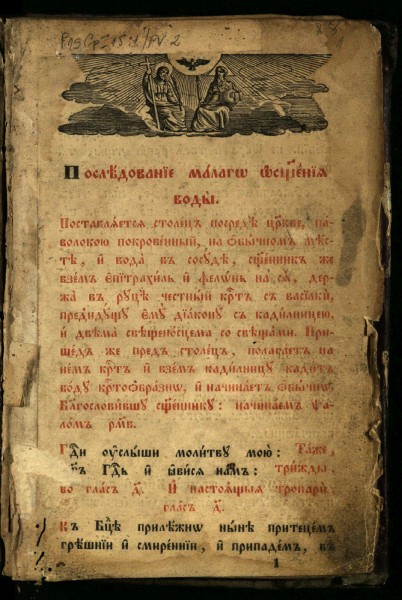 Послѣ́дованїе ма́лагѡ ѡ҆сщ҃е́нїѧ
воды̀.
Поставлѧ́етсѧ столе́цъ посредѣ̀ цр҃кве, па-
волокою покрове́нный, на ѻ҆бы́чномъ мѣ́с-
тѣ, и҆ вода̀ въ сосꙋ́дѣ, сщ҃е́нникъ же
взе́мъ є҆пїтрахи́ль и҆ фело́нь на сѧ̀, дер-
жа̀ въ рꙋцѣ̀ честны́й крⷭ҇тъ съ васїлкѝ,
предидꙋ́щꙋ є҆мꙋ̀ дїа́конꙋ съ кади́лницею,
и҆ двѣма̀ свѣщено́сцема со свѣща́ми. При-
ше́дъ же предъ столе́цъ, полага́етъ на
не́мъ крⷭ҇тъ и҆ взе́мъ кади́лницꙋ кади́тъ
во́дꙋ крⷭ҇тоѡбра́знѡ, и҆ начина́етъ ѻ҆бы́чнѡ
Бл҃гослови́вшꙋ сщ҃е́нникꙋ: начина́емъ ѱа-
ло́мъ рм҃в.
Гдⷭ҇и ᲂу҆слы́ши моли́твꙋ мою̀: Та́же,
Бг҃ъ Гдⷭ҇ь и҆ ꙗ҆ви́сѧ на́мъ: три́жды,
во гла́съ д҃. И҆ настоѧ́щыѧ тропарѝ,
гла́съ д҃.
Къ Бц҃ѣ приле́жнѡ ны́нѣ притеце́мъ
грѣ́шнїи и҆ смире́ннїи, и҆ припаде́мъ, въ
1